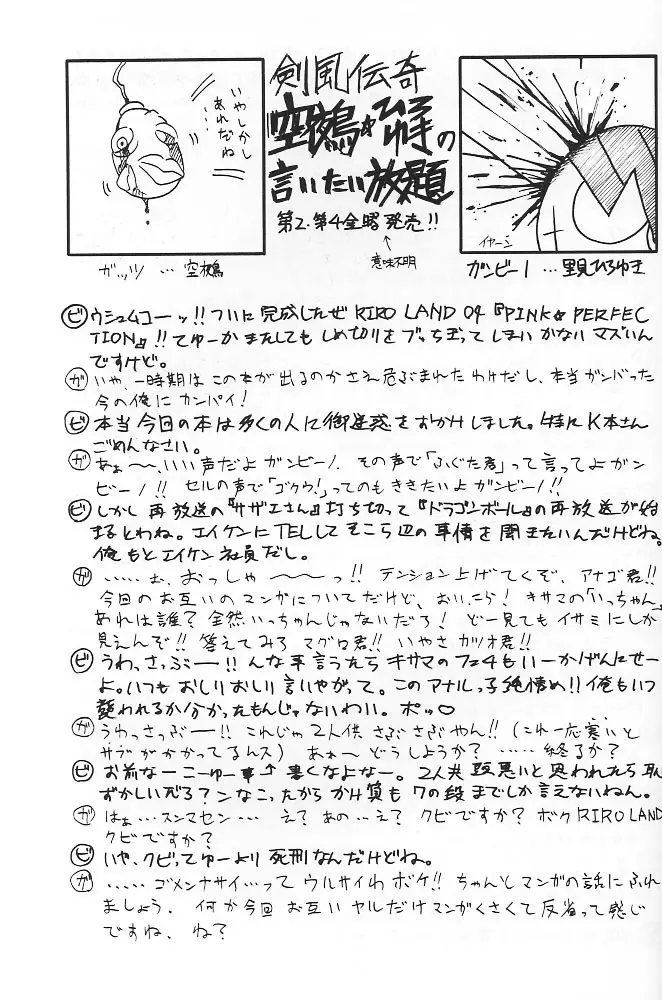 いやしかし
あれだね
剣風伝奇
空鵺☆ひろ手の
言いたい放題
第2.第4金曜発売!!
↑
意味不明
ガッツ …空鵺
イヤーン
ガンビー1…里見ひろゆき
ビ ウシュムコーッ!!ついに完成したぜRIRO LAND 04『PINK☆PERFEC
TION』!!てゆーかまたしてもしめ切りをブッちぎってしまいかないマズいん
ですけど。
ガ いや、一時期はこの本が出るのかさえ危ぶまれたわけだし、本当ガンバった
今の俺にカンパイ!
ビ 本当今回の本は多くの人に御迷惑をおかけしました。特にK本さん
ごめんなさい。
ガ あぁ〜、いい声だよガンビーノ。その声で「ふぐた君」って言ってよガン
ビーノ!!セルの声で「ゴクウ!」ってのもききたいよガンビーノ!!
ビ しかし再放送の『サザエさん』打ち切って『ドラゴンボール』の再放送が始
まるとわね。エイケンにTELしてそこら辺の事情を聞きたいんだけどね。
俺もとエイケン社員だし。
ガ ……む、おっしゃ〜〜っ!!テンション上げてくぞ、アナゴ君!!
今回のお互いのマンガについてだけど、おいこら!キサマの「いっちゃん」
あれは誰?全然いっちゃんじゃないだろ!どー見てもイサミにしか
見えんぞ!!答えてみろマグロ君!!いやさカツオ君!!
ビ うわっ、さっぶー!!んな事言うたらキサマのフェ4もいーかげんにせー
よ。いつもおしりおしり言いやがって。このアナルっ子純情め!!俺もいつ
襲われるか分かったもんじゃないわい。ポッ♡
ガ うわっさっぶー!!これじゃ2人供さぶさぶやん!!(これ一応寒いと
サブがかかってるんス)あぁ〜どうしようか?……終るか?
ビ お前なーこーゆー事↑書くなよなー。2人共頭悪いと思われたら恥
ずかしいだろ?ンなこったからかけ算も7の段までしか言えないねん。
ガ はぁ…スンマセン…え?あの…え?クビですか?ボクRIRO LAND
クビですか?
ビ いや、クビってゆーより死刑なんだけどね。
ガ ……ゴメンナサイ…ってウルサイわボケ!!ちゃんとマンガの話にふれ
ましょう。何か今回お互いヤルだけマンガくさくて反省って感じ
ですね、ね?